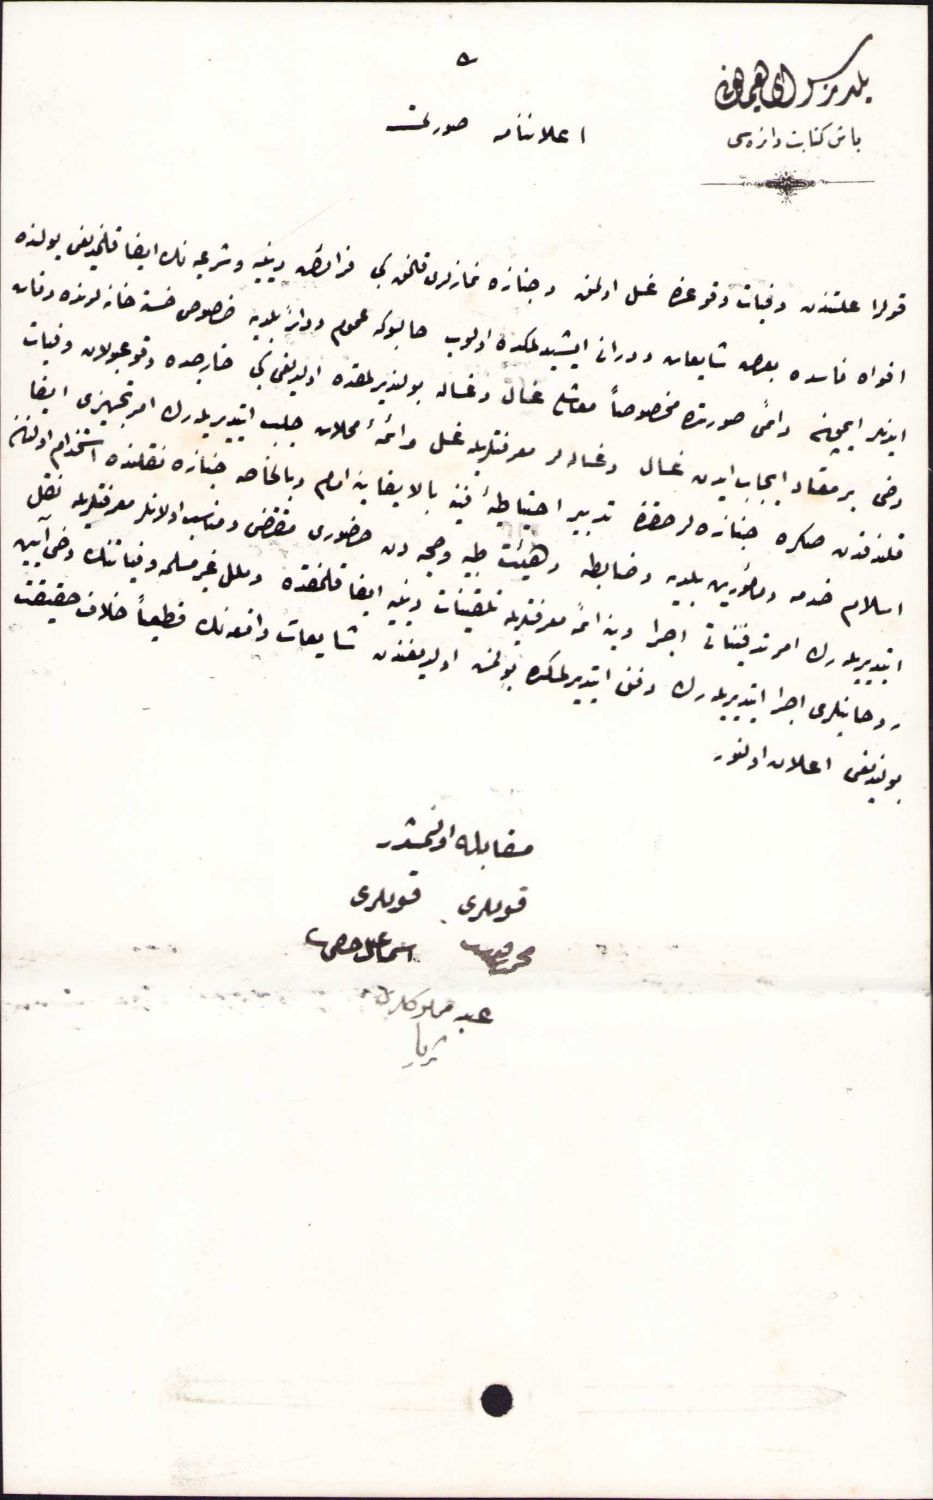 یلدیز سرای همایونی
باش کتابت دائره‌سی
اعلاننامه صورتی
قولرا علتندن وفیات وقوعنده غسل اولنمق و جنازه نمازلری قلنمق کبی فرائض دینیه و شرعیه نك ایفا قلنمدیغی یولنده
افواه ناسده بعض شایعات دورانی ایشیدلمکده اولوب حالبوکه عموم دوائر بلدیه خصوص خسته خانه لرنده وفات
ایدنلر ایچون دائمی صورتده مخصوصاً معاشلی غسال و غساله بولندیرلمقده اولدیغی کبی خارجده وقوعبولان وفیات
دخی بر معتاد ایجاب ایدن غسال و غساله لر معرفتلریله غسل و ائمهٔ محلات جلب ایتدیریله رك امر تجهیزی ایفا
قلندقدن صکره جنازه لر حقنده تدابیر احتیاطیهٔ فنیه بالایفا ینه امام و بالخاصه جنازه نقلنده استخدام اولنان
اسلام خدمه و مأمورین بلدیه و ضابطه و هیئت طبیه و صحیه دن حضوری مقتضی و مناسب اولانلر معرفتلریله نقل
ایتدیریله رك امر تدفیناتی اجرا و ینه ائمه معرفتلریله تلقینات دینیه ایفا قلنمقده و ملل غیر مسلمه وفیاتنك دخی آیین
روحانیلری اجرا ایتدیریله رك دفن ایتدیرلمکده بولنمش اولدیغندن شایعات واقعه نك قطعیاً خلاف حقیقت
بولندیغی اعلان اولنور
مقابله اولنمشدر
قوللری قوللری
اسماعیل حقی
عبد مملوکلری